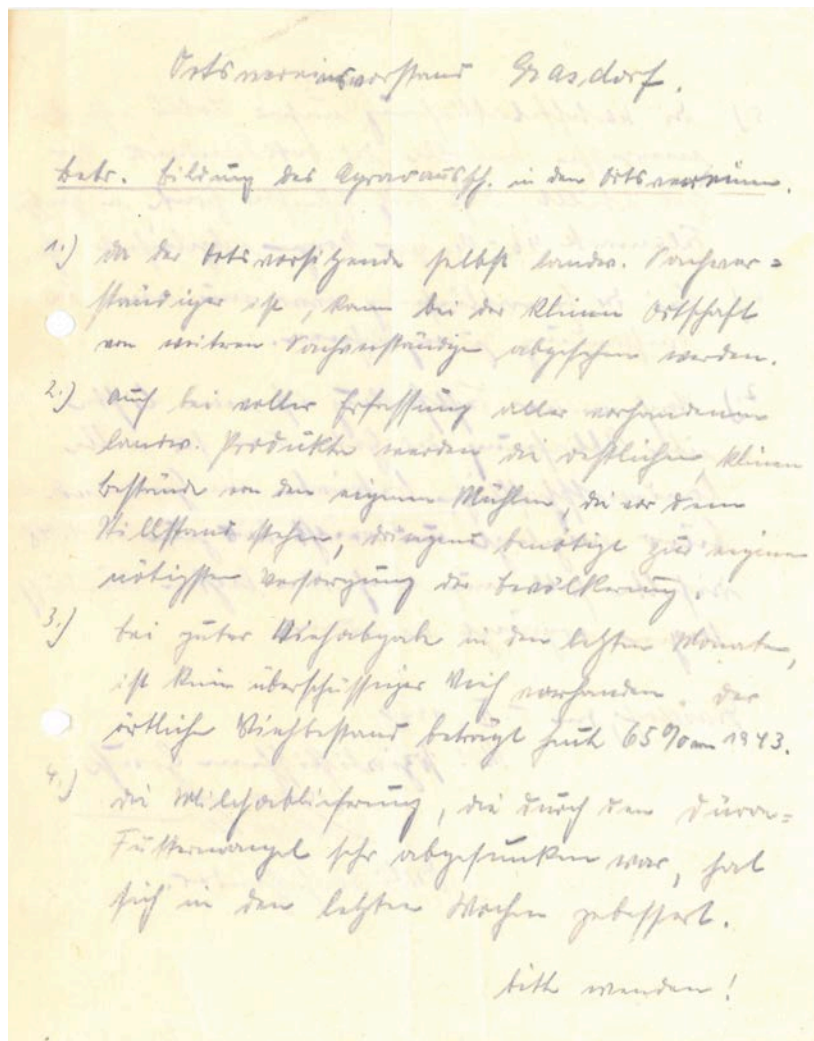 Ortsvereinsvorstand Grasdorf.
Betr. Bildung des Agraraussch. in den Ortsvereinen.
1.) Da der Ortsvorsitzende selbst landw. Sachver=
ständiger ist, kann bei der kleinen Ortschaft
von weiteren Sachverständigen abgesehen werden.
2.) Auch bei voller Erfassung aller vorhandenen
landw. Produkte werden die restlichen, kleinen
Bestände von den eigenen Mühlen, die vor dem
Stillstand stehen, dringend benötigt zur eigenen
nötigsten Versorgung der Bevölkerung.
3.) Bei guter Viehabgabe in den letzten Monaten,
ist kein überschüssiges Vieh vorhanden. Der
örtliche Viehbestand beträgt heute 65% von 1943.
4.) Die Milchablieferung, die durch den Dürre=
Futtermangel sehr abgesunken war, hat
sich in den letzten Wochen gebessert.
bitte wenden!